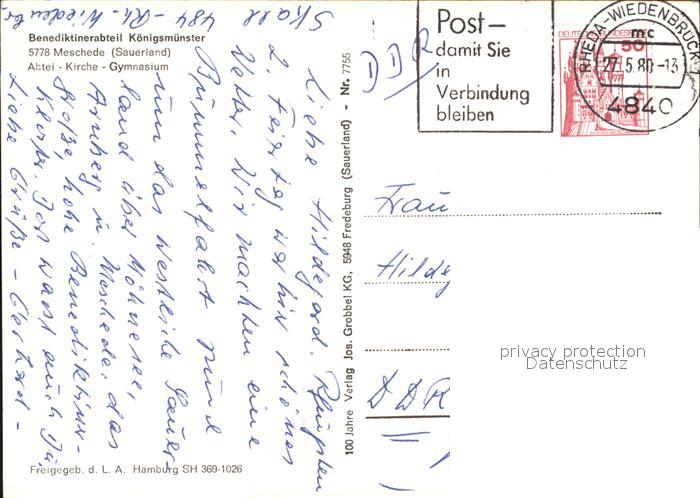 Benediktinerabteil Königsmünster
5778 Meschede (Sauerland)
Abtei - Kirche - Gymnasium
484 - Rh. Wiedenbr
Liebe Hildegard. Pfingsten
2. Feiertag war hier schönes
Wetter. Wir machten eine
Bummelfahrt rund
um das westliche Sauer-
land über Möhnesee,
Arnsberg u. Meschede, das
große, hohe Benediktiner-
Kloster. Das warst auch Du
Liebe Grüße - Gerhard -
Freigegeb. d. L. A. Hamburg SH 369-1026
100 Jahre Verlag Jos. Grobbel KG, 5948 Fredeburg (Sauerland) - Nr. 7755
DDR
Post –
damit Sie
in
Verbindung
bleiben
RHEDA-WIEDENBRÜCK
mc
27.5.80-13
4840
DEUTSCHE BUNDESPOST
50
Frau
Hildeg
DDR
privacy protection
Datenschutz